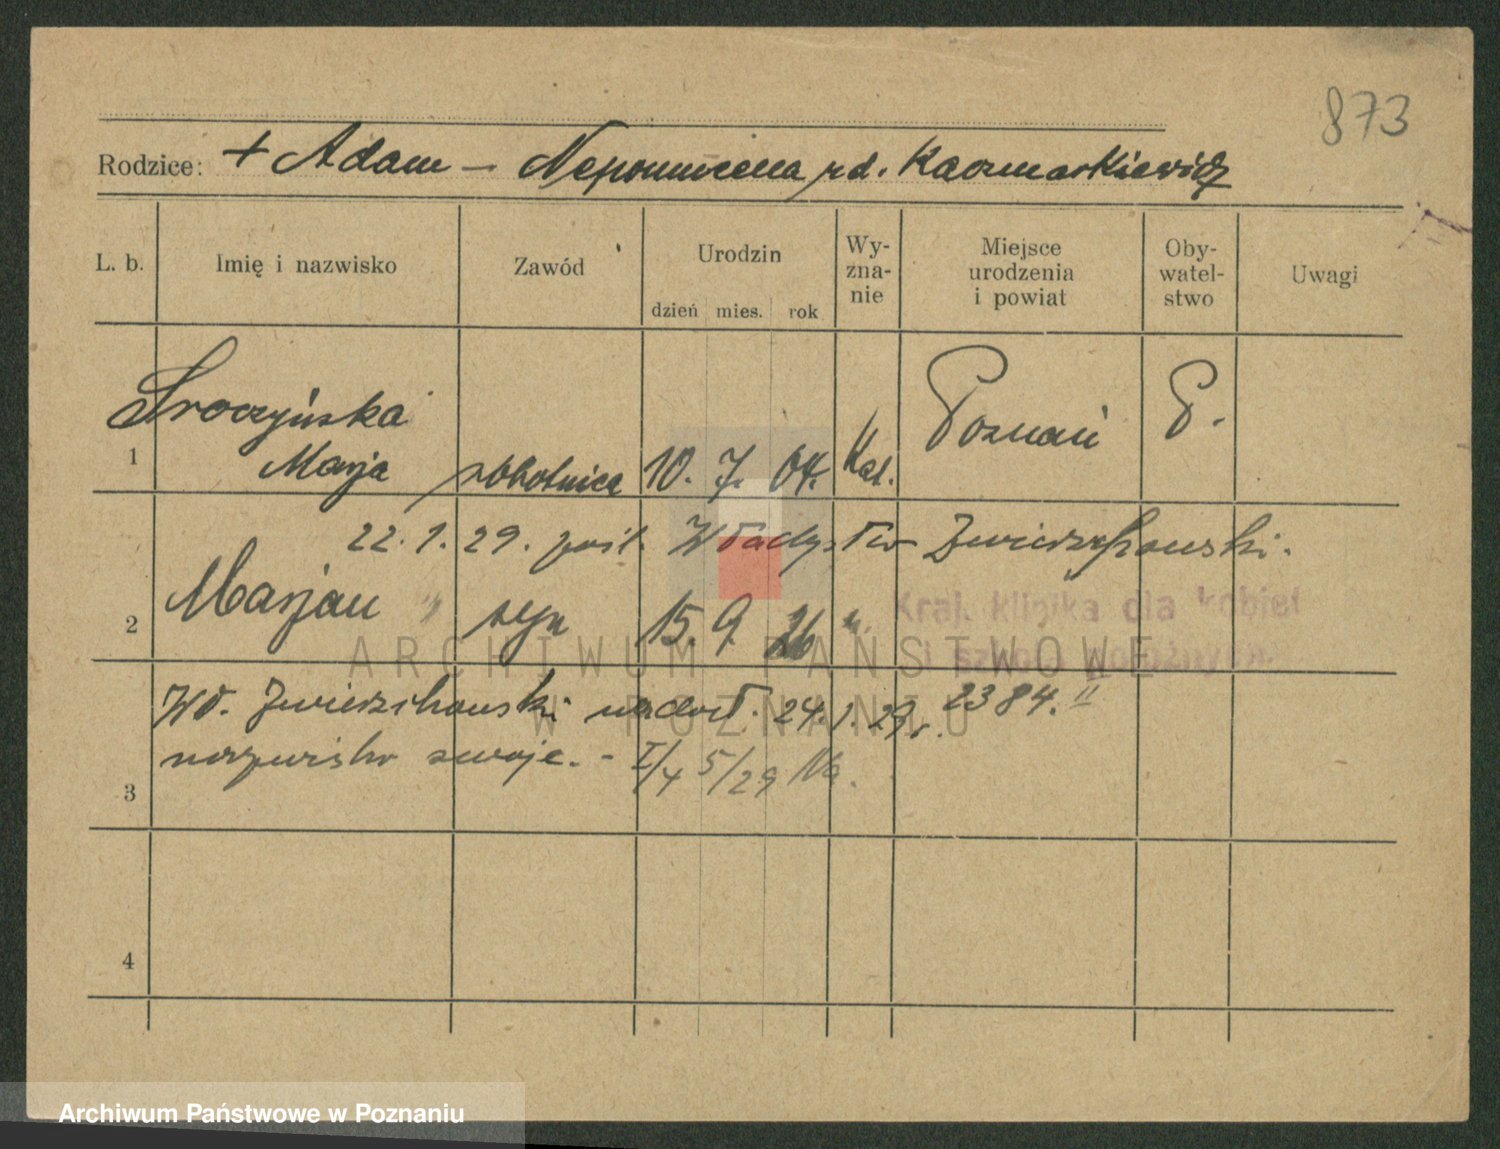 873
Rodzice: + Adam – Nepomucena rd. Kaczmarkiewicz
L. b. Imię i nazwisko Zawód Urodzin Wy-zna-nie Miejsce urodzenia i powiat Oby-watel-stwo Uwagi
dzień mies. rok
Sroczyńska Poznań P.
1 Marja robotnica 10. 7. 04. Kat.
22. 1. 29. pośl. Władysław Zwierzchowski.
2 Marjan " syn 15. 9. 26 "
Kraj. klinika dla kobiet
i szkoła położnych
Wł. Zwierzchowski nadał. 24. 1. 29 r. 2384. II
nazwisko swoje. – I/4 5/29
3
4
ARCHIWUM PAŃSTWOWE
W POZNANIU
Archiwum Państwowe w Poznaniu